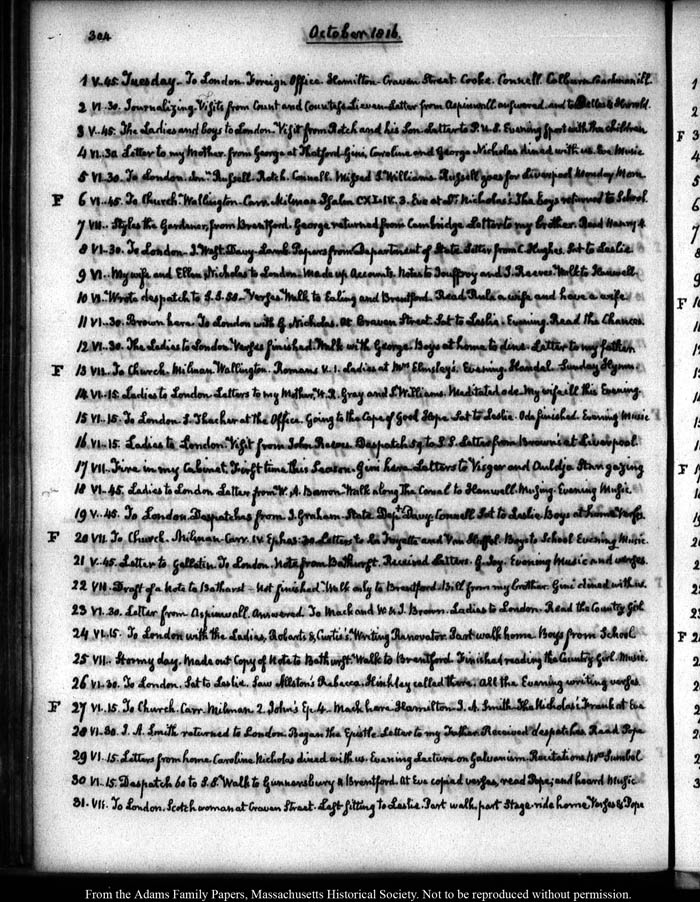 304
October 1816.
1 V.45. Tuesday. To London. Foreign Office. Hamilton. Craven Street. Cooke. Connell. Colburn. Coachman ill.
2 VI.30. Journalizing. Visits from Count and Countess Lieven. Letter from Aspinwall answered and to
3 V.45. The Ladies and boys to London. Visit from Rotch and his Son. Letter to P.U.S. Evening Sport with the children
4 VI.30 Letter to my Mother. from George at Thetford. Gini, Caroline and George Nicholas dined with us. Eve Music
5 VI.30. To London. Russell. Rotch. Connell. Missed S. Williams. Russell goes for Liverpool Monday Morn
F 6 VI.45. To Church. Wallington. Carr. Milman Psalm CXLIV. 3. Eve at Dr. Nicholas's. The Boys returned to School
7 VII. Styles the Gardener, from Brentford. George returned from Cambridge. Letter to my brother. Read Henry 4
8 VI.30. To London. J. West. Davy. Lamb. Papers from Department of State. Letter from C. Hughes. Sat to Leslie
9 VI. My wife and Ellen Nicholas to London. Made up Accounts. Notes to Jouffroy and J. Reeves. Walk to Hanwell.
10 VI. Wrote despatch to S.S. 58. Verses. Walk to Ealing and Brentford. Read Rule a wife and have a wife
11 VI.30. Brown here. To London with G. Nicholas. At Craven Street. Sat to Leslie. Evening. Read the Chances.
12 VI.30. The Ladies to London. Verses finished. Walk with George. Boys at home to dine. Letter to my father
F 13 VII. To Church. Milman. Wallington. Romans V. 1. Ladies at Mrs Elmsley's. Evening. Handel. Sunday Hymn.
14 VI.15. Ladies to London. Letters to my Mother, W. R. Gray and S. Williams. Meditated ode. My wife ill this Evening.
15 VI.15. To London. S. Thacher at the Office. Going to the Cape of Good Hope. Sat to Leslie. Ode finished. Evening Music
16 VI.15. Ladies to London. Visit from John Reeves. Despatch 59 to S.S. Letter from Brown at Liverpool.
17 VII. Fire in my Cabinet. First time this Season. Gini here. Letters to Visger and Auldjo. Star gazing
18 VI.45. Ladies to London. Letter from W. A. Barron. Walk along the Canal to Hanwell. Musing. Evening Music.
19 V.45. To London. Despatches from J. Graham. State Dept. Davy. Connell. Sat to Leslie. Boys at home. Verses.
F 20 VII. To Church. Milman. Carr. IV. Ephes: 30. Letters to La Fayette and Van Staffel. Boys to School. Evening Music.
21 V.45. Letter to Gallatin. To London. Note from Bathurst. Received Letters. G. Joy. Evening Music and verses.
22 VII. Draft of a Note to Bathurst. Not finished. Walk only to Brentford. Bill from my brother. Gini dined with us.
23 VI.30. Letter from Aspinwall. Answered. To Mack and W. & J. Brown. Ladies to London. Read the Country Girl
24 VI.15. To London with the Ladies. Robarts & Curtis's. Writing Renovator. Part walk home. Boys from School
25 VII. Stormy day. Made out Copy of Note to Bathurst. Walk to Brentford. Finished reading the Country Girl. Music.
26 VI.30. To London. Sat to Leslie. Saw Allston's Rebecca. Hinkley called there. All the Evening writing verses
F 27 VI.15. To Church. Carr. Milman. 2. John's Ep. 4. Mack here. Hamilton. J. A. Smith. The Nicholas's. Frank at Eve
28 VI.30. J. A. Smith returned to London. Began the Epistle. Letter to my Father. Received despatches. Read Pope
29 VI.15. Letters from home. Caroline Nicholas dined with us. Evening Lecture on Galvanism. Recitations. Mrs Sumbel
30 VI.15. Despatch 60 to S.S. Walk to Gunnersbury & Brentford. At Eve copied verses, read Pope; and heard Music
31. VII. To London. Scotch woman at Craven Street. Last sitting to Leslie. Part walk, part Stage ride home. Verses & Pope
From the Adams Family Papers, Massachusetts Historical Society. Not to be reproduced without permission.